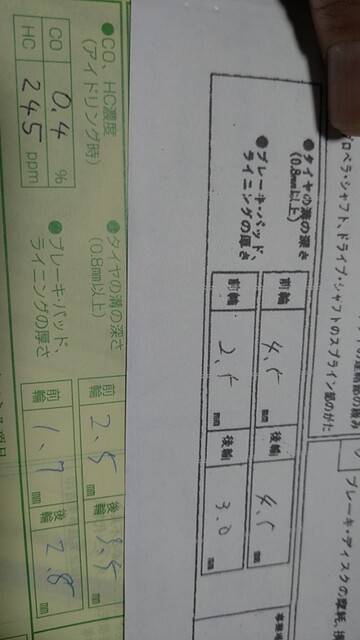 ●CO、HC濃度
(アイドリング時)
CO 0.4 %
HC 245 ppm
●タイヤの溝の深さ
(0.8mm以上)
前輪 2.5 mm 後輪 3.5 mm
●ブレーキ・パッド、
ライニングの厚さ
前輪 1.7 mm 後輪 2.8 mm
●タイヤの溝の深さ
(0.8mm以上)
前輪 4.5 mm 後輪 4.5 mm
●ブレーキ・パッド、
ライニングの厚さ
前輪 2.5 mm 後輪 3.0 mm
ロペラ・シャフト、ドライブ・シャフトのスプライン部のがた
ブレーキ・ディスクの摩耗、